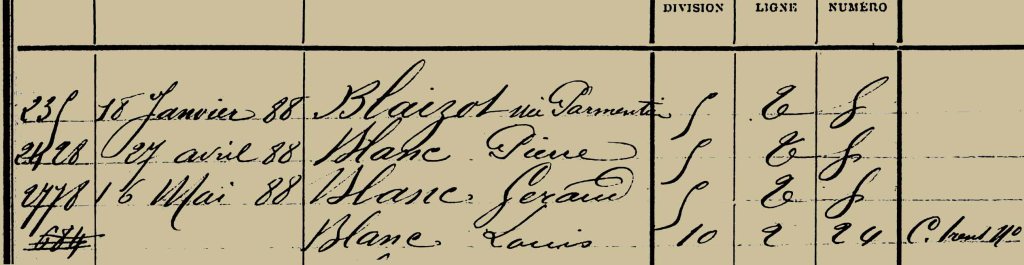 DIVISION LIGNE NUMÉRO
235 18 Janvier 88 Blaizot née Parmentier
2428 27 avril 88 Blanc Pierre
2778 16 Mai 88 Blanc Geraud
684 Blanc Louis 10 2 24